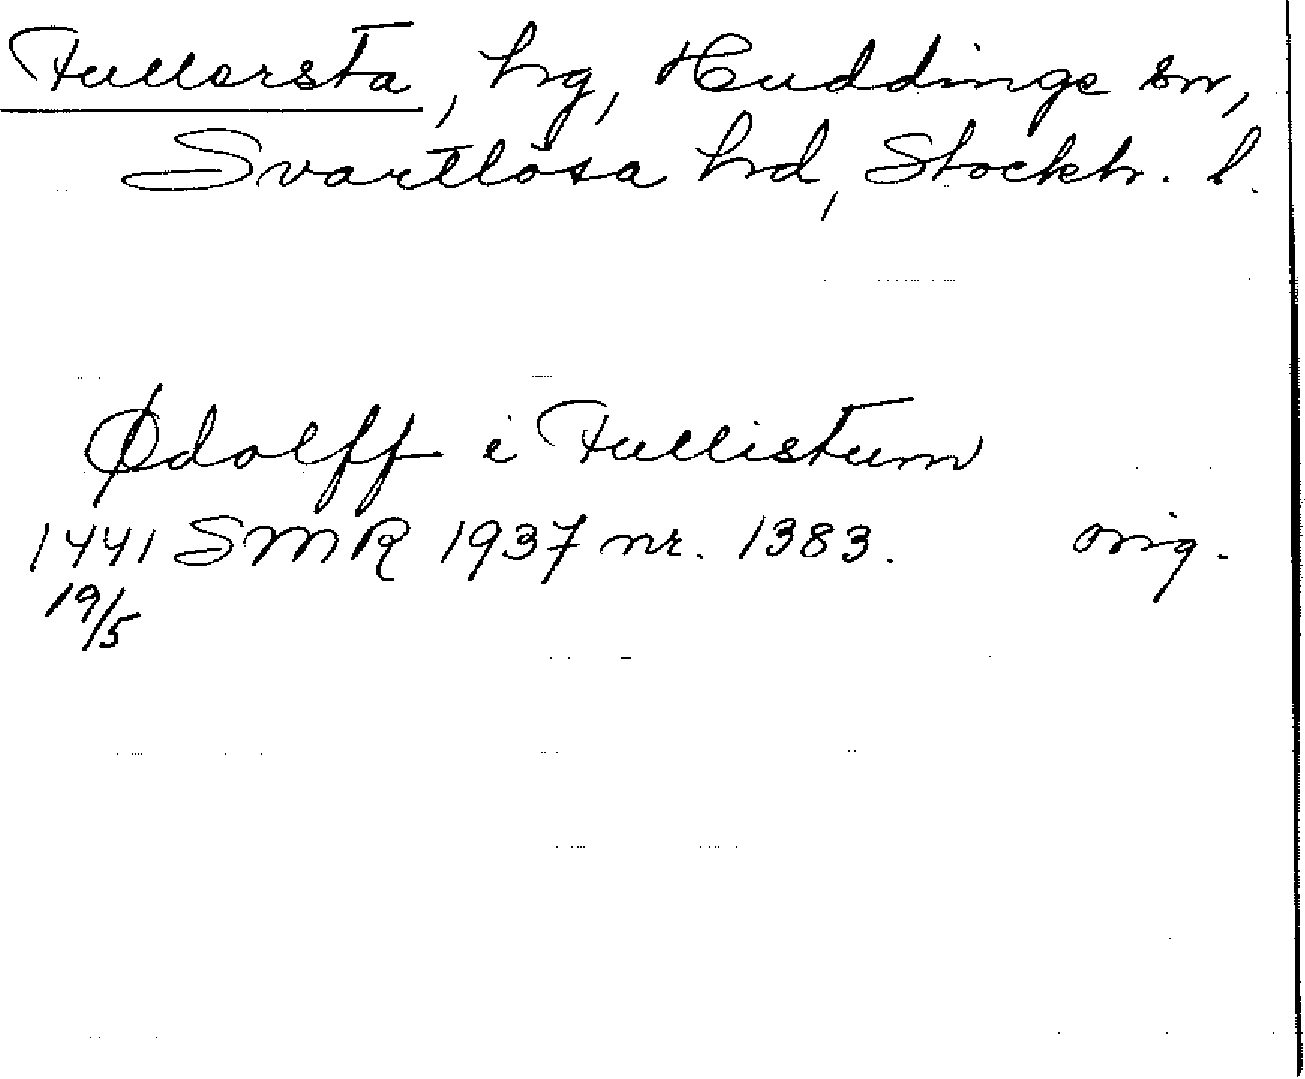 Fullersta, hg, Huddinge sn,
Svartlösa hd, Stockh. l.
Ødolff i Fullistum
1441 SMR 1937 nr. 1383. orig.
19/5